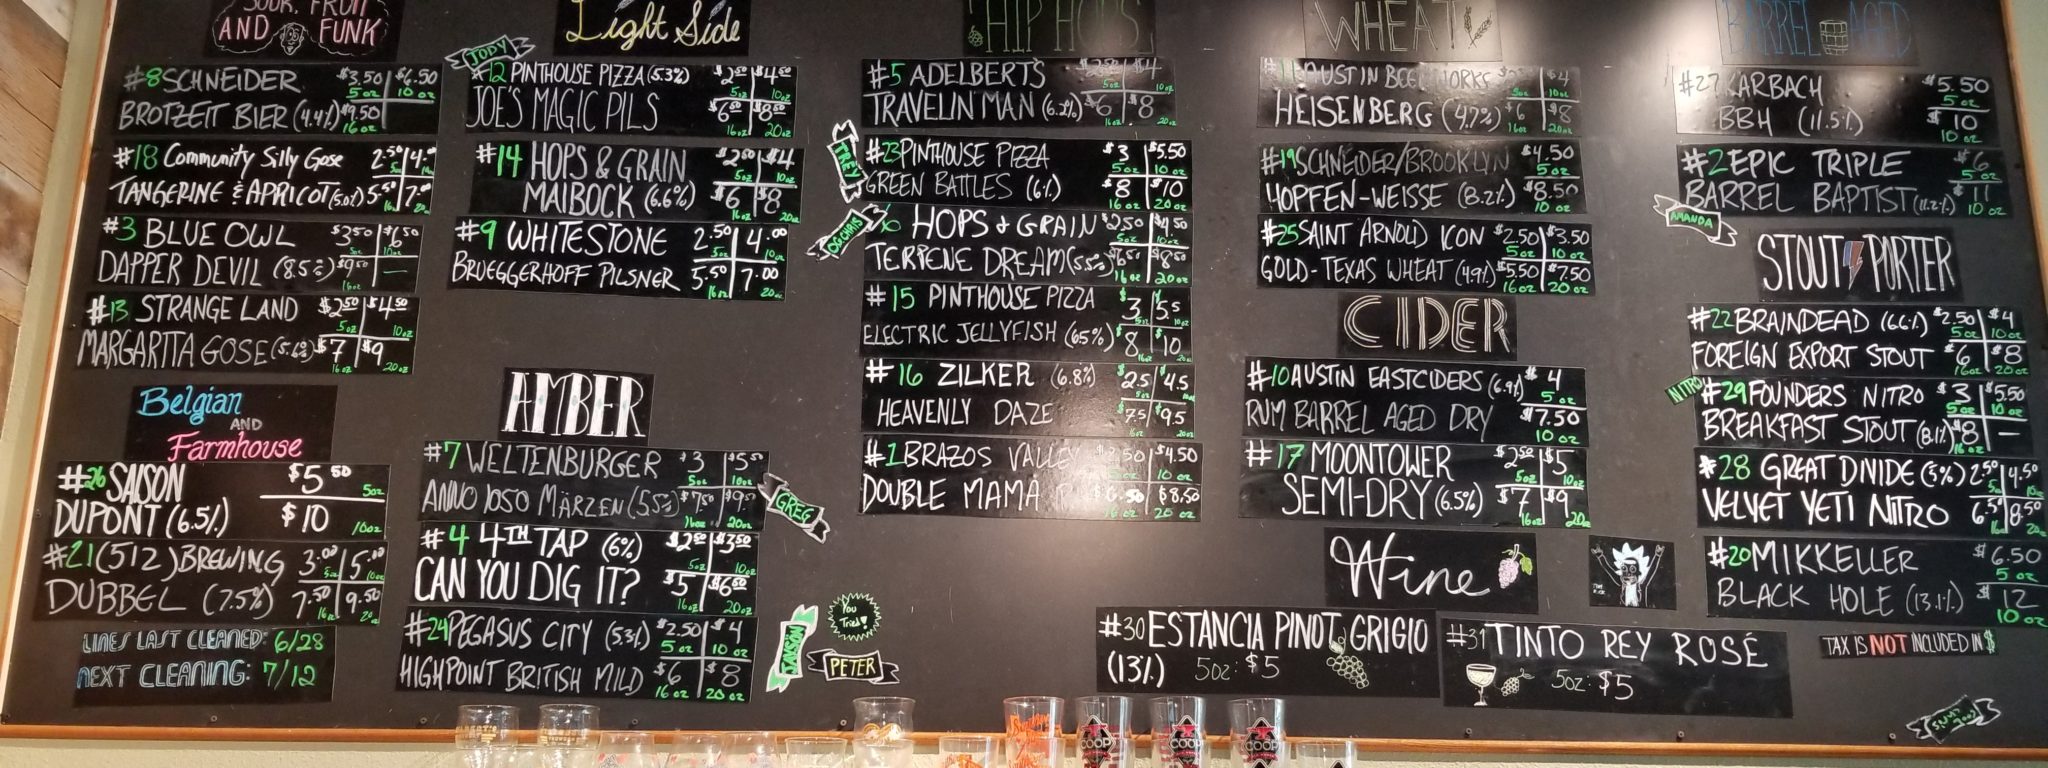 SOUR, FRUIT
AND FUNK
#8 SCHNEIDER $3.50 $6.50
5 oz 10 oz
BROTZEIT BIER (4.4%) $9.50
16 oz
#18 Community Silly Gose 2.50 4.00
TANGERINE & APRICOT (5.0%) 5.50 7.00
#3 BLUE OWL $3.50 $6.50
5oz 10oz
DAPPER DEVIL (8.5%) $9.50 —
16oz
#13 STRANGE LAND $2.50 $4.50
5oz 10oz
MARGARITA GOSE (5.6%) $7 $9
16oz 20oz
Belgian
AND
Farmhouse
#26 SAISON $5.50
5oz
DUPONT (6.5%) $10
10oz
#21 (512) BREWING 3.00 5.00
5oz 10oz
DUBBEL (7.5%) 7.50 9.50
16oz 20z
LINES LAST CLEANED: 6/28
NEXT CLEANING: 7/12
Light Side
JODY
#12 PINTHOUSE PIZZA (5.3%) $2.50 $4.50
5oz 10oz
JOE'S MAGIC PILS $6.50 $8.50
16oz 20oz
#14 HOPS & GRAIN $2.50 $4
5oz 10oz
MAIBOCK (6.6%) $6 $8
16oz 20oz
#9 WHITESTONE 2.50 4.00
5oz 10oz
BRUEGGERHOFF PILSNER 5.50 7.00
16oz 20z
AMBER
#7 WELTENBURGER $3 $5.50
5oz 10oz
ANNO 1050 MÄRZEN (5.5%) $7.50 $9.50
16oz 20oz
GREG
#4 4TH TAP (6%) $2.50 $3.50
5oz 10oz
CAN YOU DIG IT? $5 $6.50
16oz 20oz
#24 PEGASUS CITY (5.3%) $2.50 $4
5 oz 10 oz
HIGHPOINT BRITISH MILD $6 $8
16 oz 20 oz
You
Tried!
JAYSÖN
PETER
HIP HOPS
#5 ADELBERTS $2.50 $4
5oz 10oz
TRAVELIN' MAN (6.2%) $6 $8
16oz 20z
TREY
#23 PINTHOUSE PIZZA $3 $5.50
5oz 10oz
GREEN BATTLES (6%) $8 $10
16 oz 20 oz
HOPS & GRAIN $2.50 $4.50
5oz 10oz
TERPENE DREAM (5.5%) $6.50 $8.50
16oz 20oz
#15 PINTHOUSE PIZZA $3 $5.5
5oz 10oz
ELECTRIC JELLYFISH (6.5%) $8 $10
16oz 20z
#16 ZILKER (6.8%) $2.5 $4.5
5oz
HEAVENLY DAZE $7.5 $9.5
16oz 20z
#1 BRAZOS VALLEY $2.50 $4.50
5 oz 10 oz
DOUBLE MAMA $6.50 $8.50
16 oz 20 oz
WHEAT
#11 AUSTIN BEERWORKS $4
5oz 10oz
HEISENBERG (4.7%) $6 $8
16oz 20oz
#19 SCHNEIDER/BROOKLYN $4.50
5oz
HOPFEN-WEISSE (8.2%) $8.50
10 oz
#25 SAINT ARNOLD ICON $2.50 $3.50
5oz 10 oz
GOLD-TEXAS WHEAT (4.9%) $5.50 $7.50
16 oz 20 oz
CIDER
#10 AUSTIN EASTCIDERS (6.9%) $4
5oz
RUM BARREL AGED DRY $7.50
10 oz
#17 MOONTOWER $2.50 $5
5oz 10oz
SEMI-DRY (6.5%) $7 $9
16oz 20z
Wine
#30 ESTANCIA PINOT GRIGIO
(13%) 5oz: $5
#31 TINTO REY ROSÉ
5oz: $5
BARREL AGED
#27 KARBACH $5.50
5 oz
BBH (11.5%) $10
10 oz
#2 EPIC TRIPLE $6
5 oz
BARREL BAPTIST (11.2%) $11
10 oz
AMANDA
STOUT PORTER
#22 BRAINDEAD (6.6%) $2.50 $4
5oz 10oz
FOREIGN EXPORT STOUT $6 $8
16oz 20 oz
NITRO
#29 FOUNDERS NITRO $3 $5.50
5 oz 10 oz
BREAKFAST STOUT (8.1%) $8 —
16oz
#28 GREAT DIVIDE (5%) 2.50 4.50
VELVET YETI NITRO 6.50 8.50
#20 MIKKELLER $6.50
5 oz
BLACK HOLE (13.1%) $12
10 oz
TAX IS NOT INCLUDED IN $
COOP
COOP
COOP